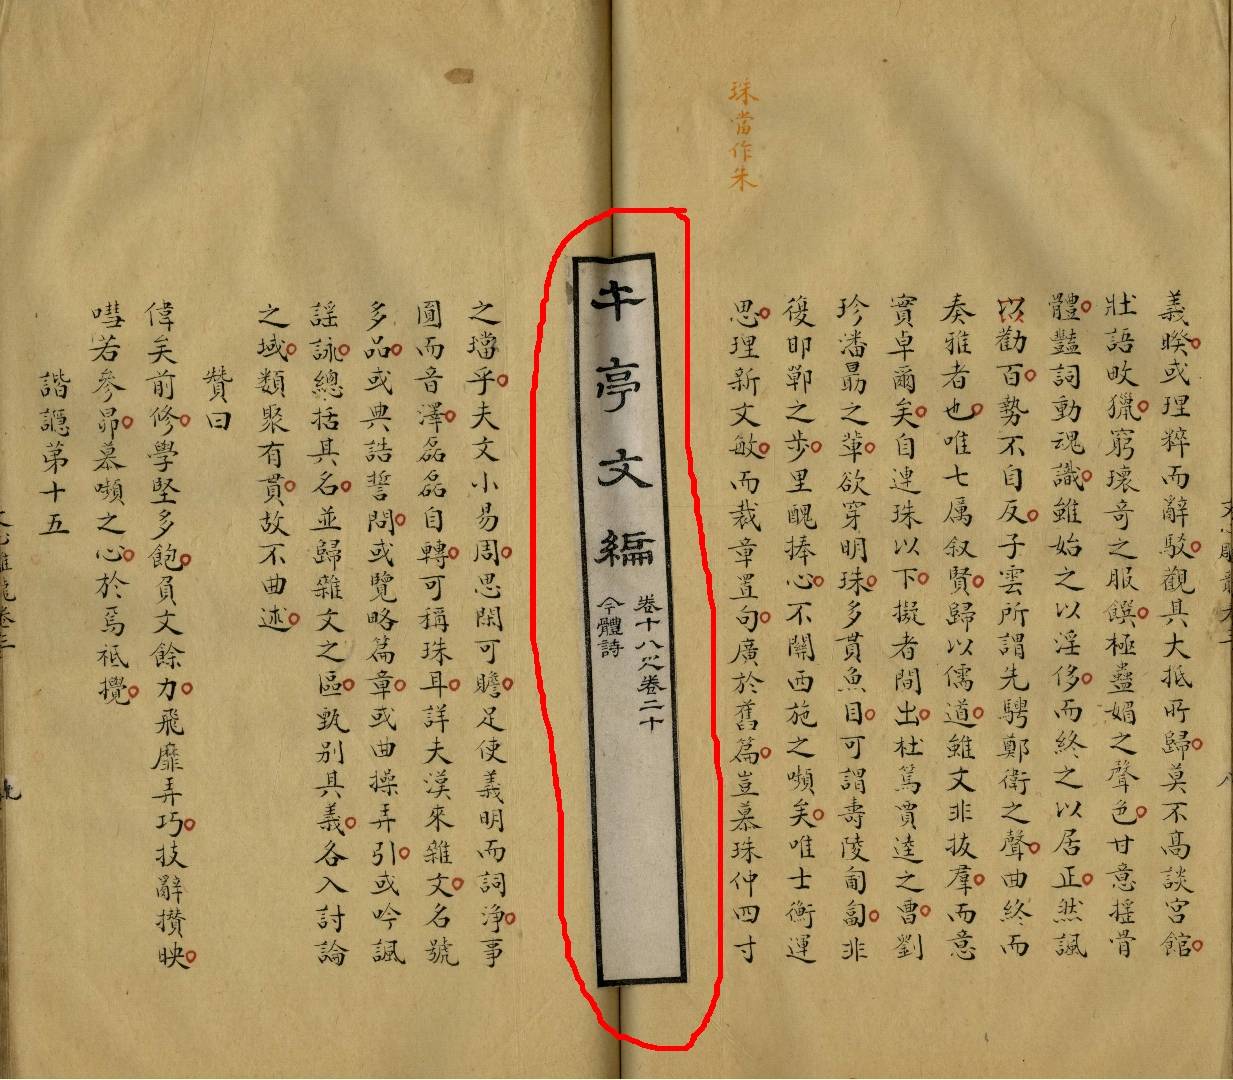 珠當作朱
義暌或理粹而辭駁觀其大抵所歸莫不高談宮館
壯語畋獵窮瓌奇之服饌極蠱媚之聲色甘意搖骨
體豔詞動魂識雖始之以淫侈而終之以居正然諷
以勸百勢不自反子雲所謂先騁鄭衛之聲曲終而
奏雅者也唯七厲叙賢歸以儒道雖文非拔羣而意
實卓爾矣自連珠以下擬者間出杜篤賈逵之曹劉
珍潘勗之輩欲穿明珠多貫魚目可謂壽陵匍匐非
復邯鄲之步里醜捧心不關西施之嚬矣唯士衡運
思理新文敏而裁章置句廣於舊篇豈慕珠仲四寸
午亭文編
卷十八 卷二十
今體詩
之璫乎夫文小易周思閑可贍足使義明而詞淨事
圓而音澤磊磊自轉可稱珠耳詳夫漢來雜文名號
多品或典誥誓問或覽略篇章或曲操弄引或吟諷
謠詠總括其名並歸雜文之區甄别其義各入討論
之域類聚有貫故不曲述
贊曰
偉矣前修學堅多飽負文餘力飛靡弄巧技辭攢映
嘒若參昴慕嚬之心於焉祗攪
諧讔第十五